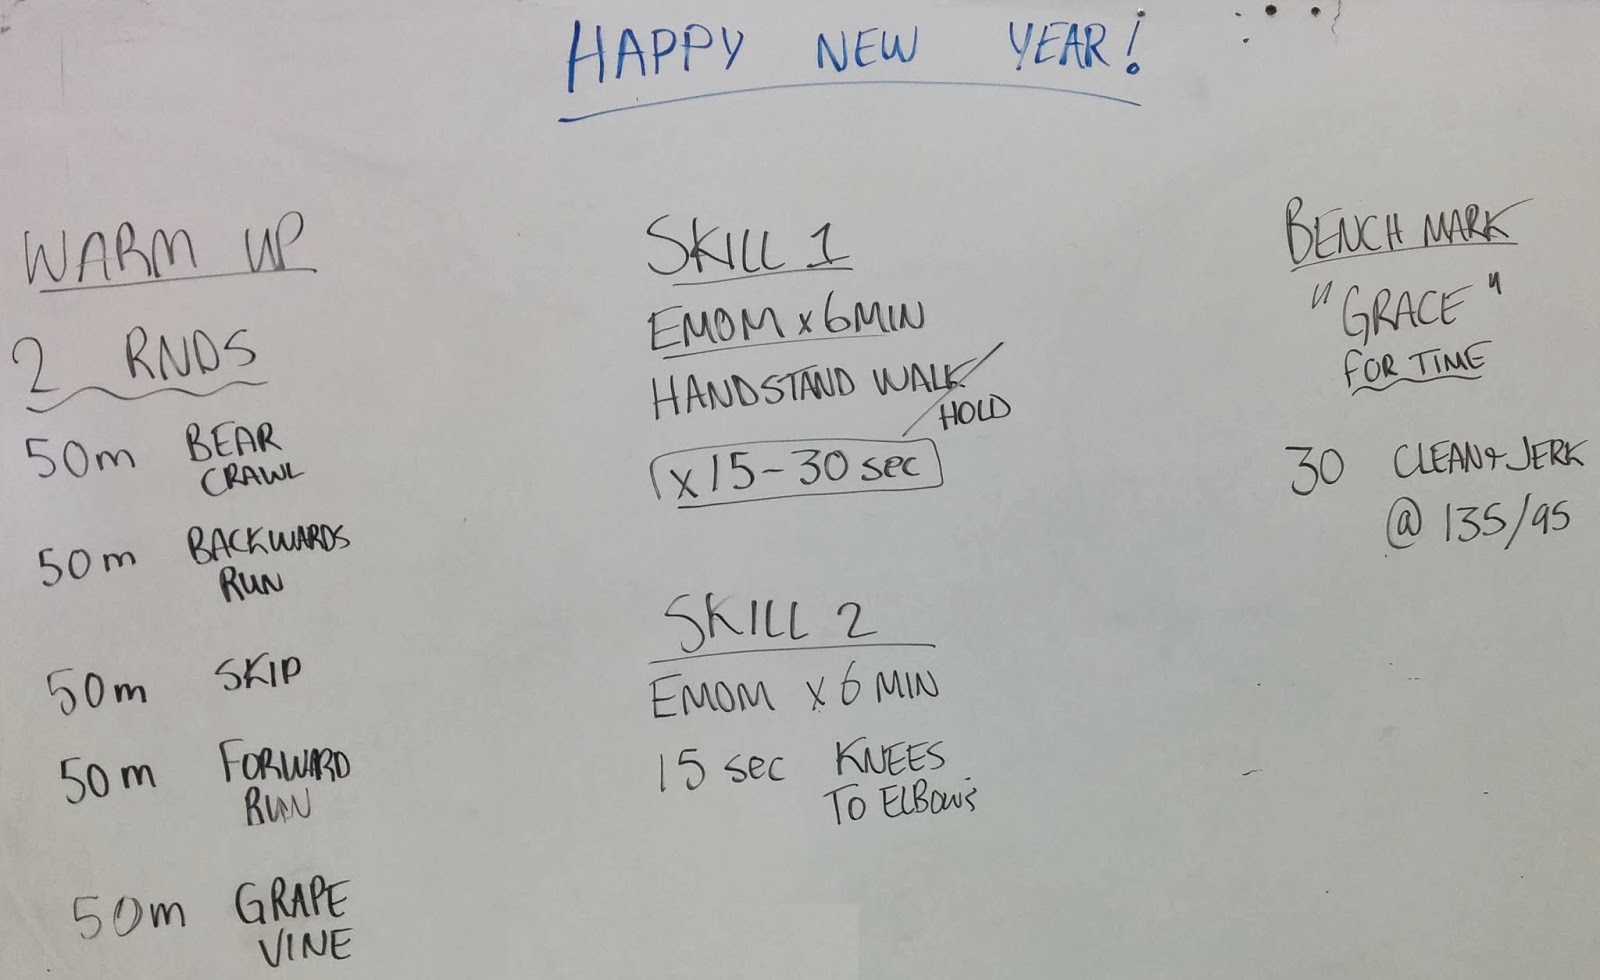 HAPPY NEW YEAR!
WARM UP
2 RNDS
50m BEAR
CRAWL
50m BACKWARDS
RUN
50m SKIP
50m FORWARD
RUN
50m GRAPE
VINE
SKILL 1
EMOM x 6MIN
HANDSTAND WALK/
HOLD
x 15-30 sec
SKILL 2
EMOM x 6 MIN
15 sec KNEES
TO ELBOWS
BENCH MARK
"GRACE"
FOR TIME
30 CLEAN+JERK
@ 135/95